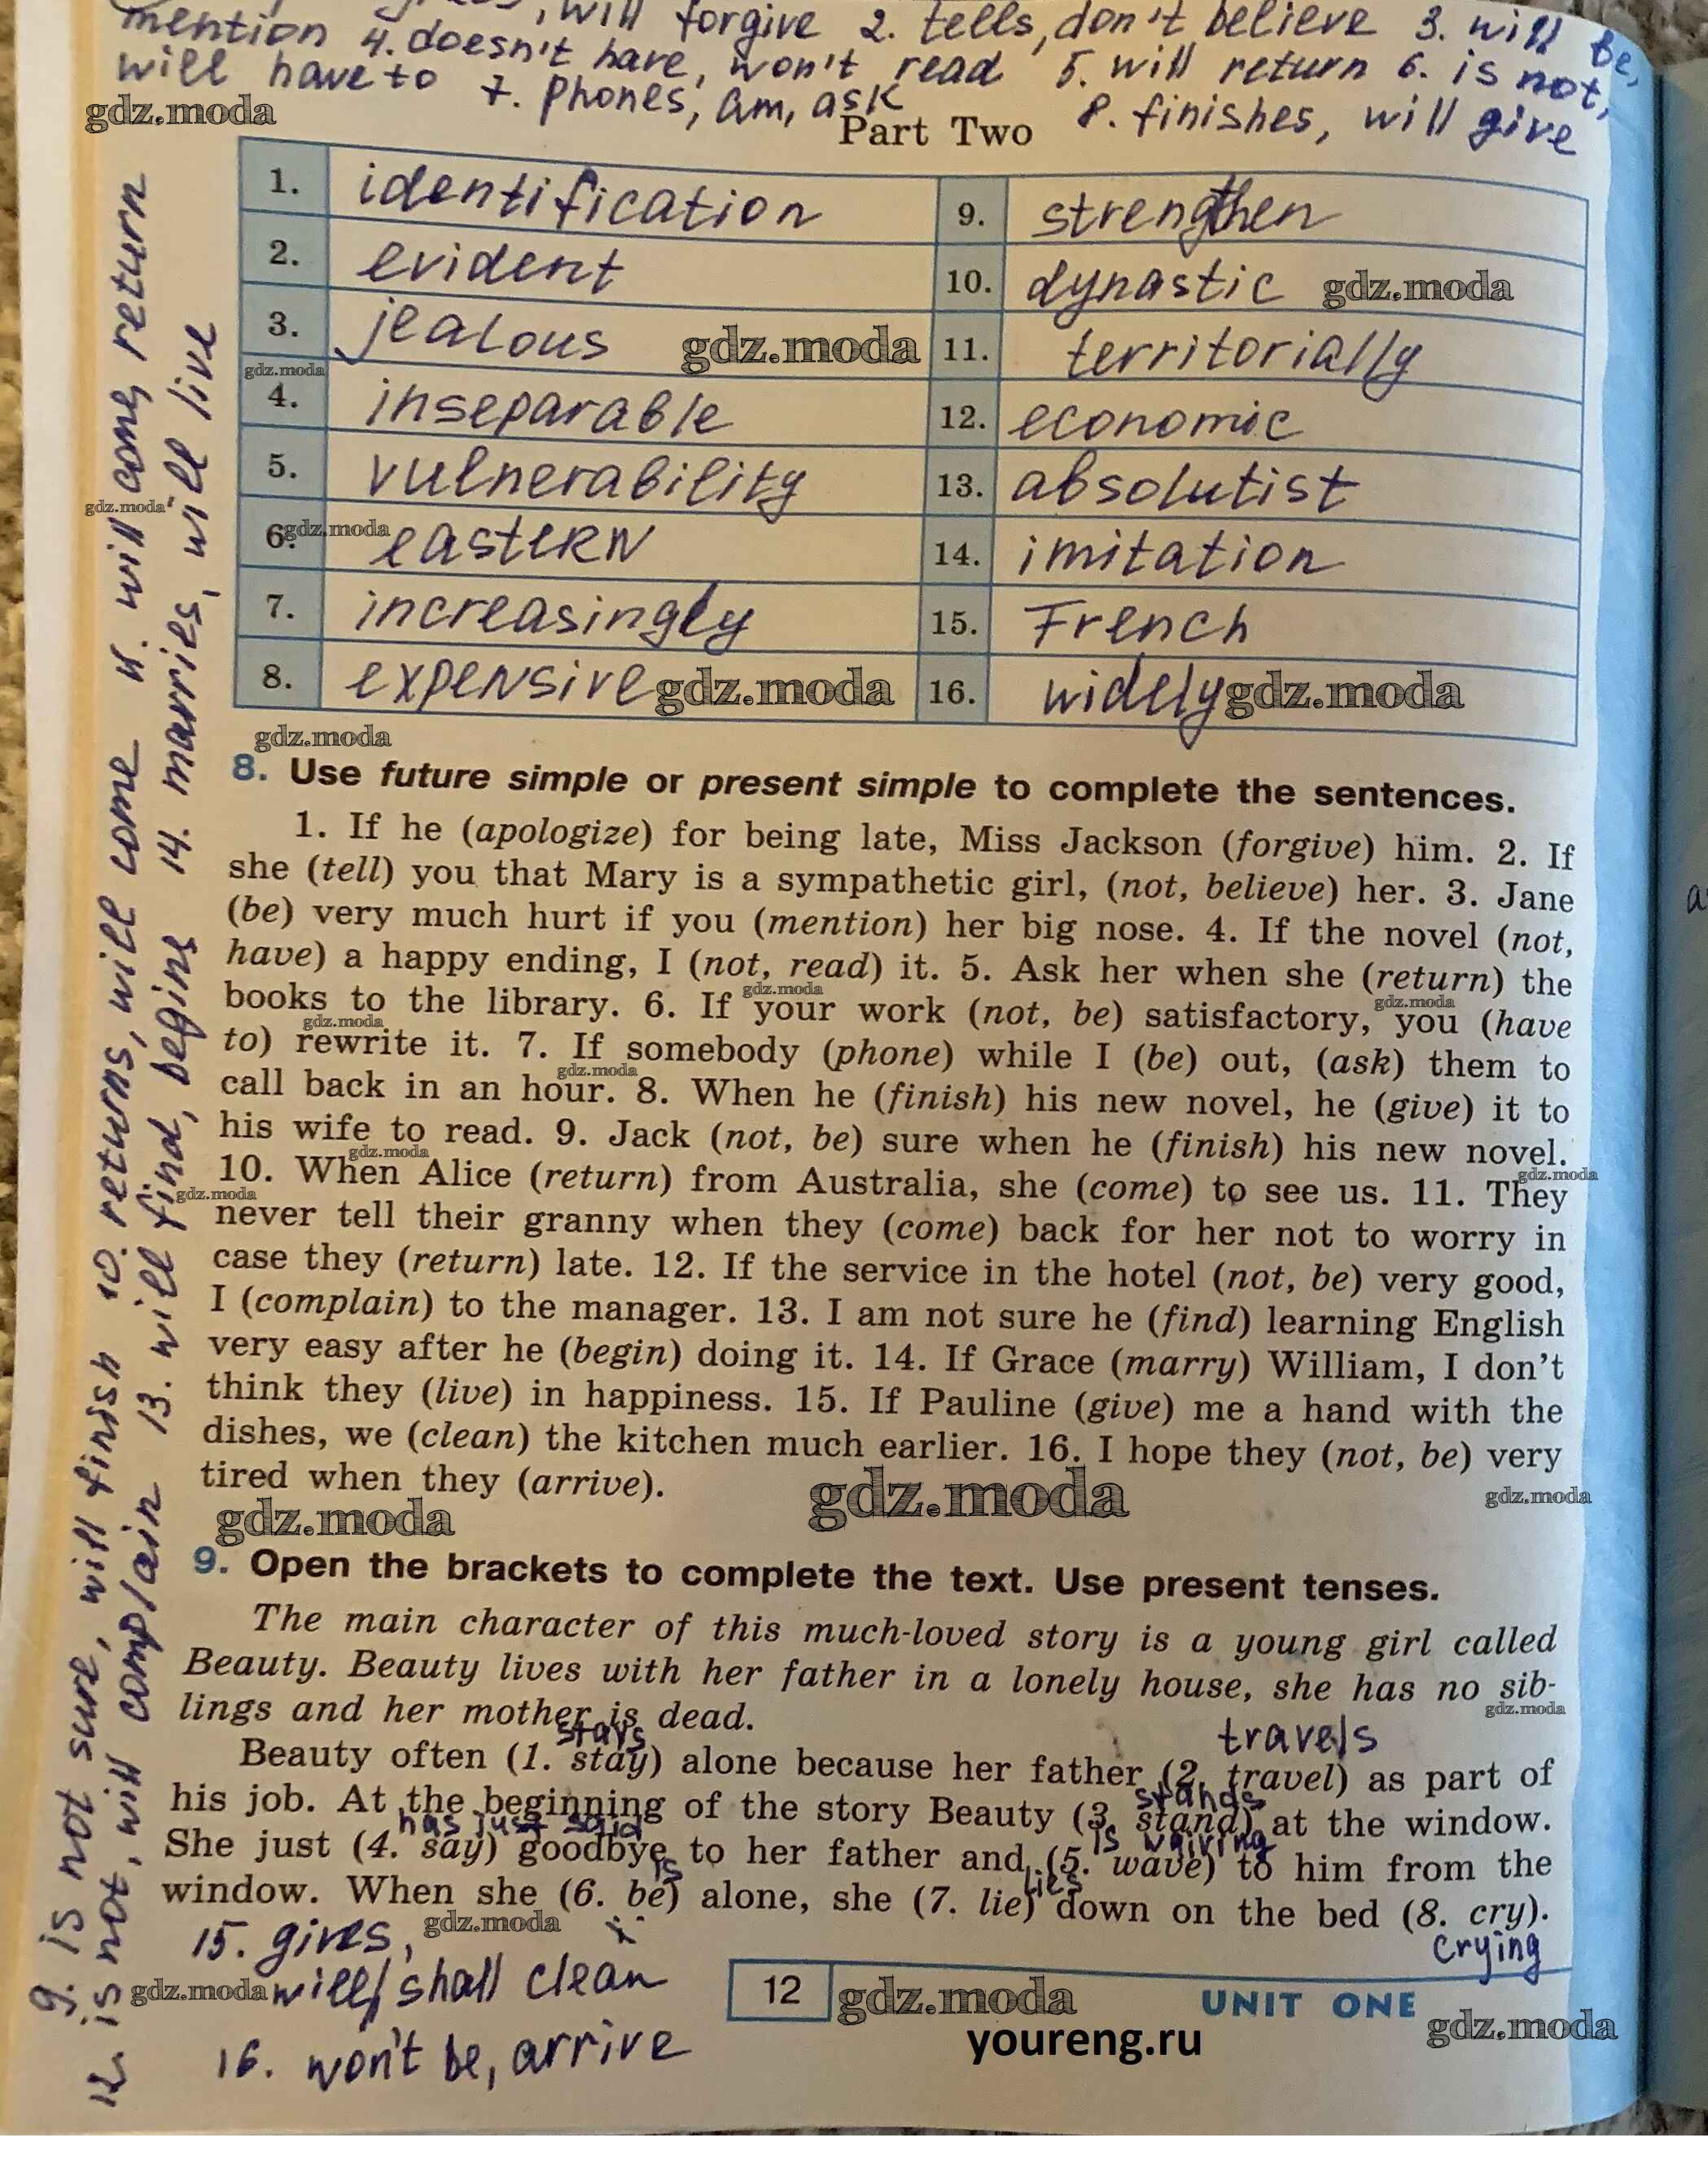 will forgive 2. tells, don't believe 3. will be,
mention 4. doesn't have, won't read 5. will return 6. is not,
will have to 7. phones, am, ask 8. finishes, will give
gdz.moda
Part Two
1. identification
2. evident
3. jealous
gdz.moda
gdz.moda
4. inseparable
5. vulnerability
6. eastern
gdz.moda
7. increasingly
8. expensive
gdz.moda
9. strengthen
10. dynastic
gdz.moda
11. territorially
12. economic
13. absolutist
14. imitation
15. French
16. widely
gdz.moda
gdz.moda
gdz.moda
8. Use future simple or present simple to complete the sentences.
1. If he (apologize) for being late, Miss Jackson (forgive) him. 2. If
she (tell) you that Mary is a sympathetic girl, (not, believe) her. 3. Jane
(be) very much hurt if you (mention) her big nose. 4. If the novel (not,
have) a happy ending, I (not, read) it. 5. Ask her when she (return) the
gdz.moda
gdz.moda
books to the library. 6. If your work (not, be) satisfactory, you (have
gdz.moda
to) rewrite it. 7. If somebody (phone) while I (be) out, (ask) them to
gdz.moda
call back in an hour. 8. When he (finish) his new novel, he (give) it to
his wife to read. 9. Jack (not, be) sure when he (finish) his new novel.
gdz.moda
gdz.moda
10. When Alice (return) from Australia, she (come) to see us. 11. They
gdz.moda
never tell their granny when they (come) back for her not to worry in
case they (return) late. 12. If the service in the hotel (not, be) very good,
I (complain) to the manager. 13. I am not sure he (find) learning English
very easy after he (begin) doing it. 14. If Grace (marry) William, I don't
think they (live) in happiness. 15. If Pauline (give) me a hand with the
dishes, we (clean) the kitchen much earlier. 16. I hope they (not, be) very
tired when they (arrive).
gdz.moda
gdz.moda
gdz.moda
9. Open the brackets to complete the text. Use present tenses.
The main character of this much-loved story is a young girl called
Beauty. Beauty lives with her father in a lonely house, she has no sib-
lings and her mother is dead.
gdz.moda
stays
travels
Beauty often (1. stay) alone because her father (2. travel) as part of
stands
his job. At the beginning of the story Beauty (3. stand) at the window.
has just said
is waiving
She just (4. say) goodbye to her father and (5. wave) to him from the
is
lies
window. When she (6. be) alone, she (7. lie) down on the bed (8. cry).
crying
9. is not sure, will finish 10. returns, will come 11. will come, return
12. is not, will complain 13. will find, begins 14. marries, will live
15. gives,
gdz.moda
will/shall clean
gdz.moda
16. won't be, arrive
12
gdz.moda
UNIT ONE
gdz.moda
youreng.ru